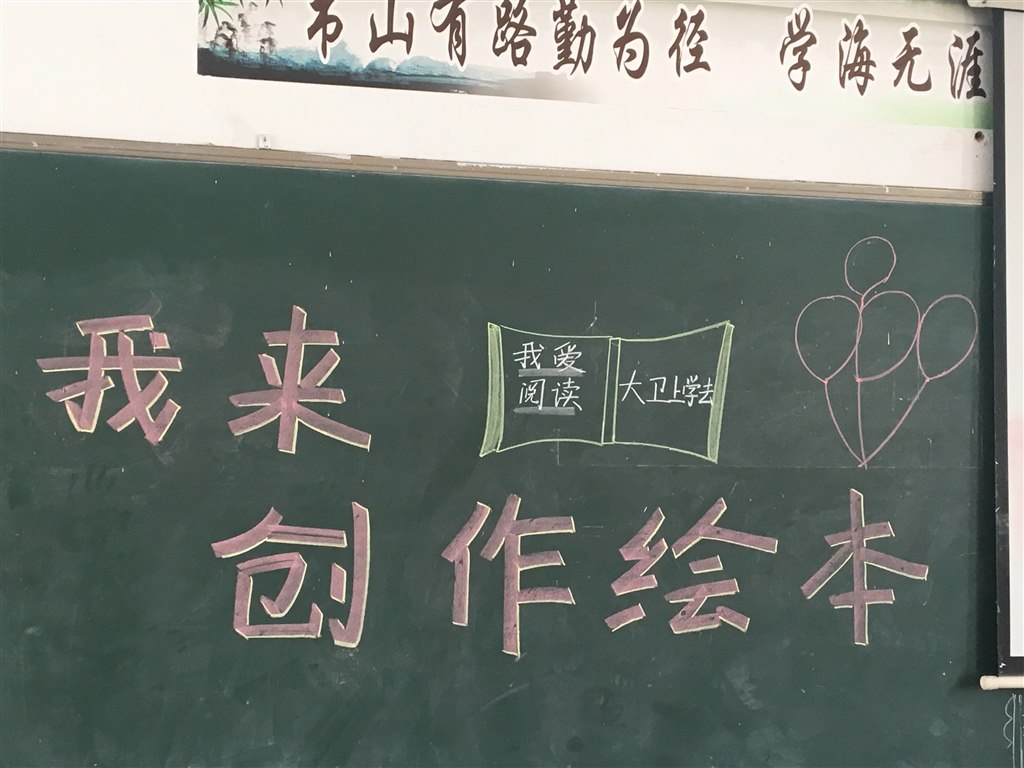 书山有路勤为径 学海无涯
我来
我爱
阅读
大卫上学去
创作绘本